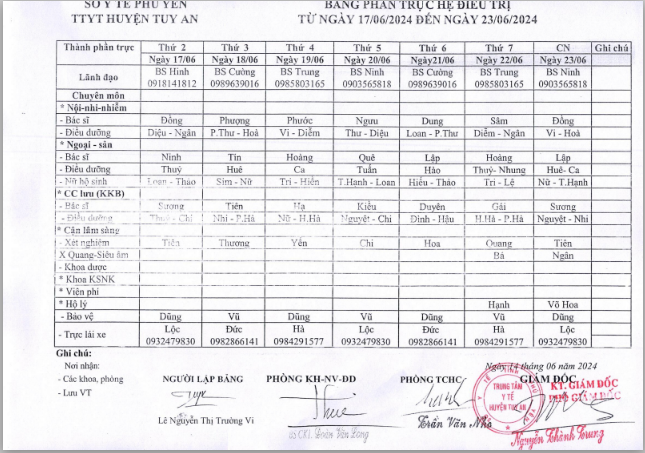 SỞ Y TẾ PHÚ YÊN
TTYT HUYỆN TUY AN
BẢNG PHÂN TRỰC HỆ ĐIỀU TRỊ
TỪ NGÀY 17/06/2024 ĐẾN NGÀY 23/06/2024
Thành phần trực Thứ 2 Thứ 3 Thứ 4 Thứ 5 Thứ 6 Thứ 7 CN Ghi chú
Ngày 17/06 Ngày 18/06 Ngày 19/06 Ngày 20/06 Ngày21/06 Ngày 22/06 Ngày 23/06
Lãnh đạo BS Hinh BS Cường BS Trung BS Ninh BS Cường BS Trung BS Ninh
0918141812 0989639016 0985803165 0903565818 0989639016 0985803165 0903565818
Chuyên môn
* Nội-nhi-nhiễm
- Bác sĩ Đồng Phượng Phước Ngưu Dung Sâm Đồng
- Điều dưỡng Diệu - Ngân P.Thư - Hoà Vi - Diễm Thư - Diệu Loan - P.Thư Diễm - Ngân Vi - Hoà
* Ngoại - sản
- Bác sĩ Ninh Tín Hoàng Quê Lập Hoàng Lập
- Điều dưỡng Thuý Huê Ca Tuấn Hào Thuý- Nhung Huê- Ca
- Nữ hộ sinh Loan - Thảo Sim - Nữ Tri - Hiền T.Hạnh - Loan Hiếu - Thảo Tri - Lệ Nữ - T.Hạnh
* CC lưu (KKB)
- Bác sĩ Sương Tiên Hạ Kiều Duyên Gái Sương
- Điều dưỡng Thuý - Chi Nhi - P.Hà Nữ - H.Hà Nguyệt - Chi Dinh - Hậu H.Hà - P.Hà Nguyệt - Nhi
* Cận lâm sàng
- Xét nghiệm Tiên Thương Yến Chi Hoa Quang Tiên
X Quang-Siêu âm Bá Ngân
- Khoa dược
* Khoa KSNK
* Viện phí
* Hộ lý Hạnh Võ Hoa
- Bảo vệ Dũng Vũ Dũng Vũ Dũng Vũ Dũng
- Trực lái xe Lộc Đức Hà Lộc Đức Hà Lộc
0932479830 0982866141 0984291577 0932479830 0982866141 0984291577 0932479830
Ghi chú:
Nơi nhận:
- Các khoa, phòng
- Lưu VT
Ngày 14 tháng 06 năm 2024
NGƯỜI LẬP BẢNG PHÒNG KH-NV-DD PHÒNG TCHC GIÁM ĐỐC
KT. GIÁM ĐỐC
PHÓ GIÁM ĐỐC
TRUNG TÂM
Y TẾ
HUYỆN TUY AN
Lê Nguyễn Thị Trường Vi
Trần Văn Nhỏ
Nguyễn Thành Trung